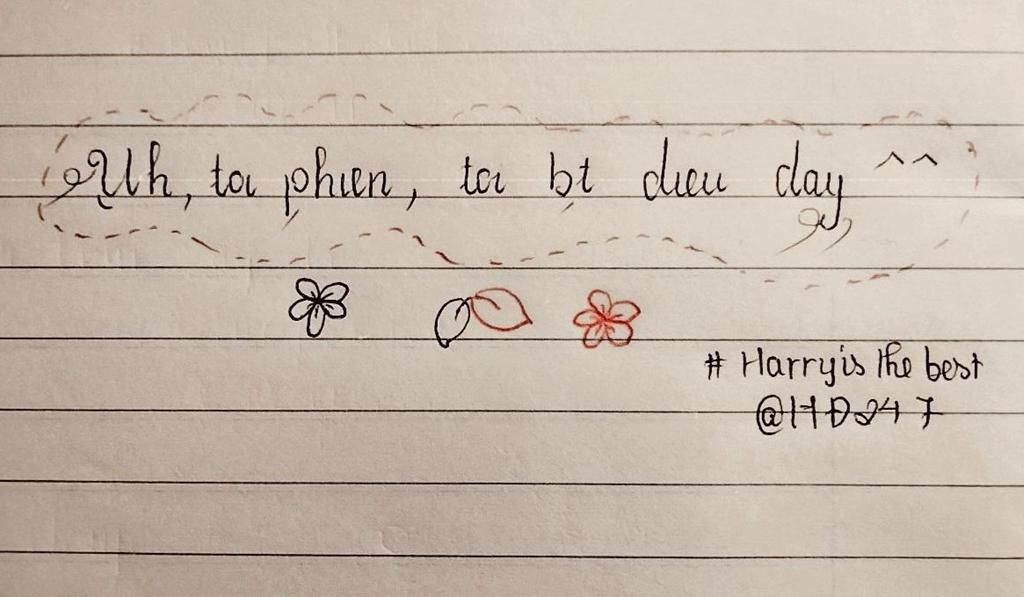 Uh, ta phien, ta bt dieu day ^^
# Harry is the best
@HD247